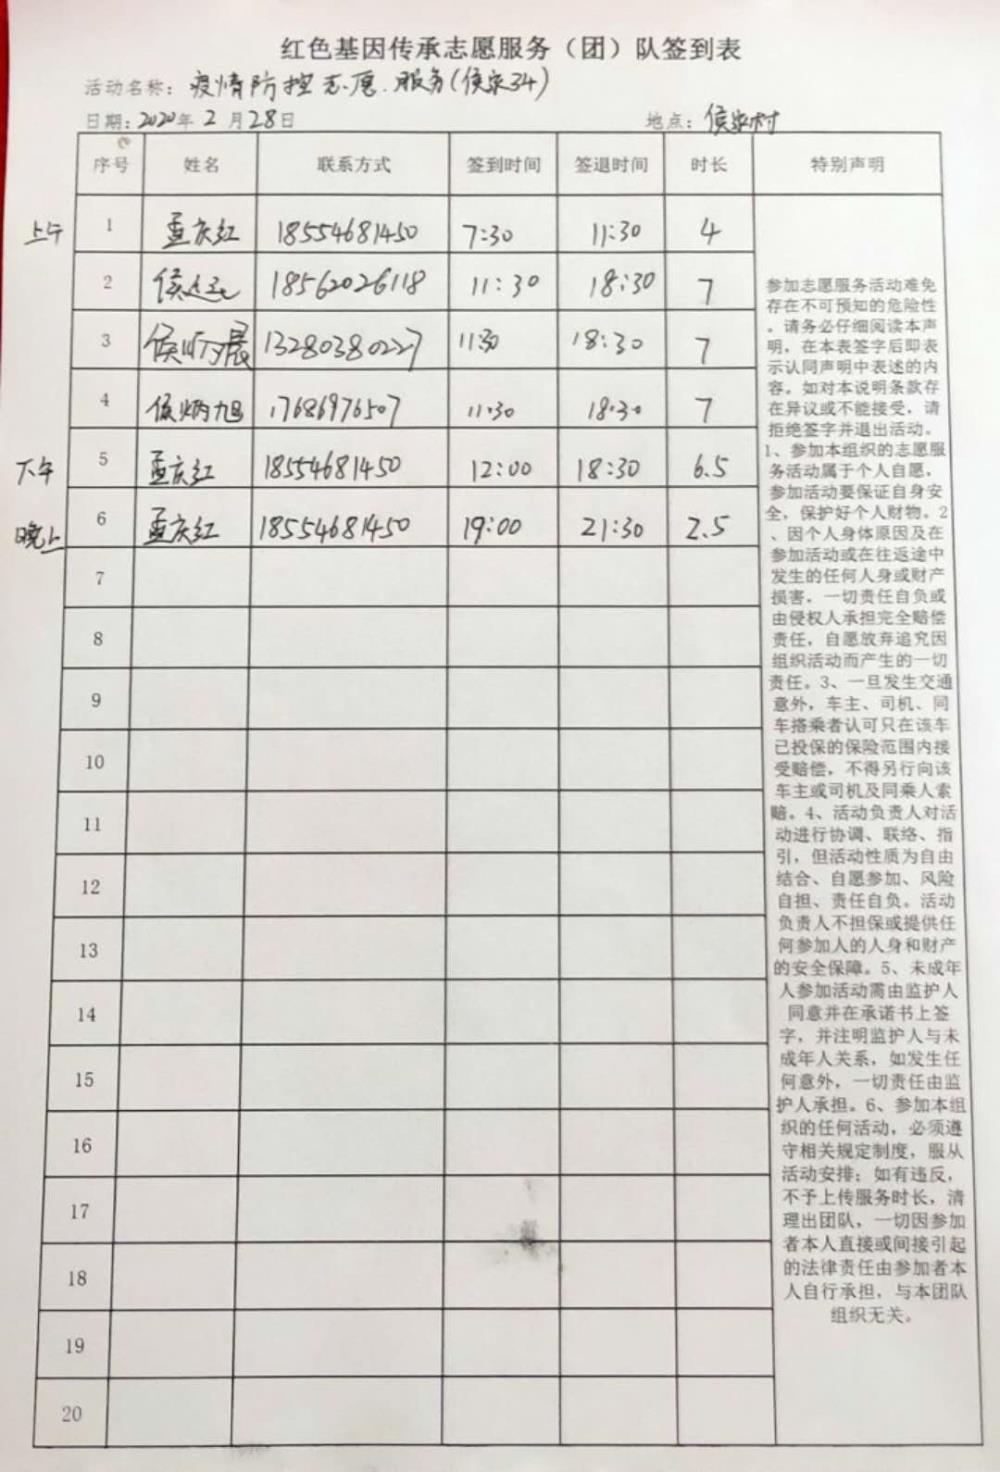 红色基因传承志愿服务（团）队签到表
活动名称：疫情防控志愿服务(侯家34)
日期：2020年2月28日 地点：侯家村
序号 姓名 联系方式 签到时间 签退时间 时长 特别声明
上午 1 孟庆红 18554681450 7:30 11:30 4
2 侯 18562026118 11:30 18:30 7
3 侯昕晨 13280380227 11:30 18:30 7
4 侯炳旭 17686976507 11:30 18:30 7
下午 5 孟庆红 18554681450 12:00 18:30 6.5
晚上 6 孟庆红 18554681450 19:00 21:30 2.5
7
8
9
10
11
12
13
14
15
16
17
18
19
20
参加志愿服务活动难免
存在不可预知的危险性
。请务必仔细阅读本声
明，在本表签字后即表
示认同声明中表述的内
容。如对本说明条款存
在异议或不能接受，请
拒绝签字并退出活动。
1、参加本组织的志愿服
务活动属于个人自愿，
参加活动要保证自身安
全，保护好个人财物。2
、因个人身体原因及在
参加活动或在往返途中
发生的任何人身或财产
损害，一切责任自负或
由侵权人承担完全赔偿
责任，自愿放弃追究因
组织活动而产生的一切
责任。3、一旦发生交通
意外，车主、司机、同
车搭乘者认可只在该车
已投保的保险范围内接
受赔偿，不得另行向该
车主或司机及同乘人索
赔。4、活动负责人对活
动进行协调、联络、指
引，但活动性质为自由
结合、自愿参加、风险
自担、责任自负。活动
负责人不担保或提供任
何参加人的人身和财产
的安全保障。5、未成年
人参加活动需由监护人
同意并在承诺书上签
字，并注明监护人与未
成年人关系，如发生任
何意外，一切责任由监
护人承担。6、参加本组
织的任何活动，必须遵
守相关规定制度，服从
活动安排；如有违反，
不予上传服务时长，清
理出团队，一切因参加
者本人直接或间接引起
的法律责任由参加者本
人自行承担，与本团队
组织无关。